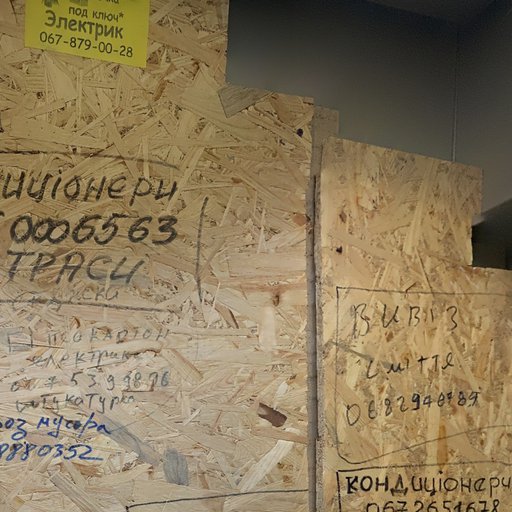 под ключ*
Электрик
067-879-00-28
иціонери
0006563
ТРАСИ
гіпсокартон
електрика
штукатурка
воз мусора
8880352
ВИВІЗ
сміття
0682940789
кондиціонери
0672651678